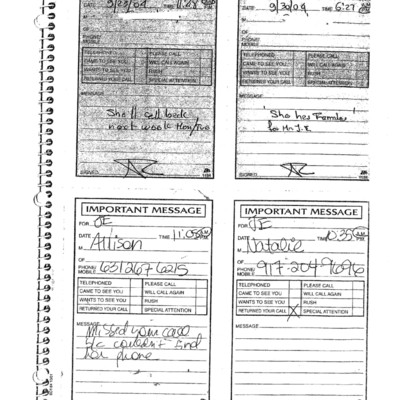 DATE 9/22/04 TIME 11:28
M
OF
PHONE/
MOBILE
TELEPHONED PLEASE CALL
CAME TO SEE YOU WILL CALL AGAIN
WANTS TO SEE YOU RUSH
RETURNED YOUR CALL SPECIAL ATTENTION
MESSAGE
She'll call back
next week Mon/Tue
SIGNED
DATE 9/30/04 TIME 6:27
M
OF
PHONE/
MOBILE
TELEPHONED PLEASE CALL
CAME TO SEE YOU WILL CALL AGAIN
WANTS TO SEE YOU RUSH
RETURNED YOUR CALL SPECIAL ATTENTION
MESSAGE
She has
SIGNED
IMPORTANT MESSAGE
FOR JE
DATE TIME 11:05 AM
M Allison
OF
PHONE/
MOBILE 631 267 6215
TELEPHONED PLEASE CALL
CAME TO SEE YOU WILL CALL AGAIN
WANTS TO SEE YOU RUSH
RETURNED YOUR CALL SPECIAL ATTENTION
MESSAGE
Missed your call
b/c couldn't find
her phone
IMPORTANT MESSAGE
FOR JE
DATE TIME 10:35 AM
M Natalie
OF
PHONE/
MOBILE 917-204-9696
TELEPHONED PLEASE CALL
CAME TO SEE YOU WILL CALL AGAIN
WANTS TO SEE YOU RUSH
RETURNED YOUR CALL X SPECIAL ATTENTION
MESSAGE